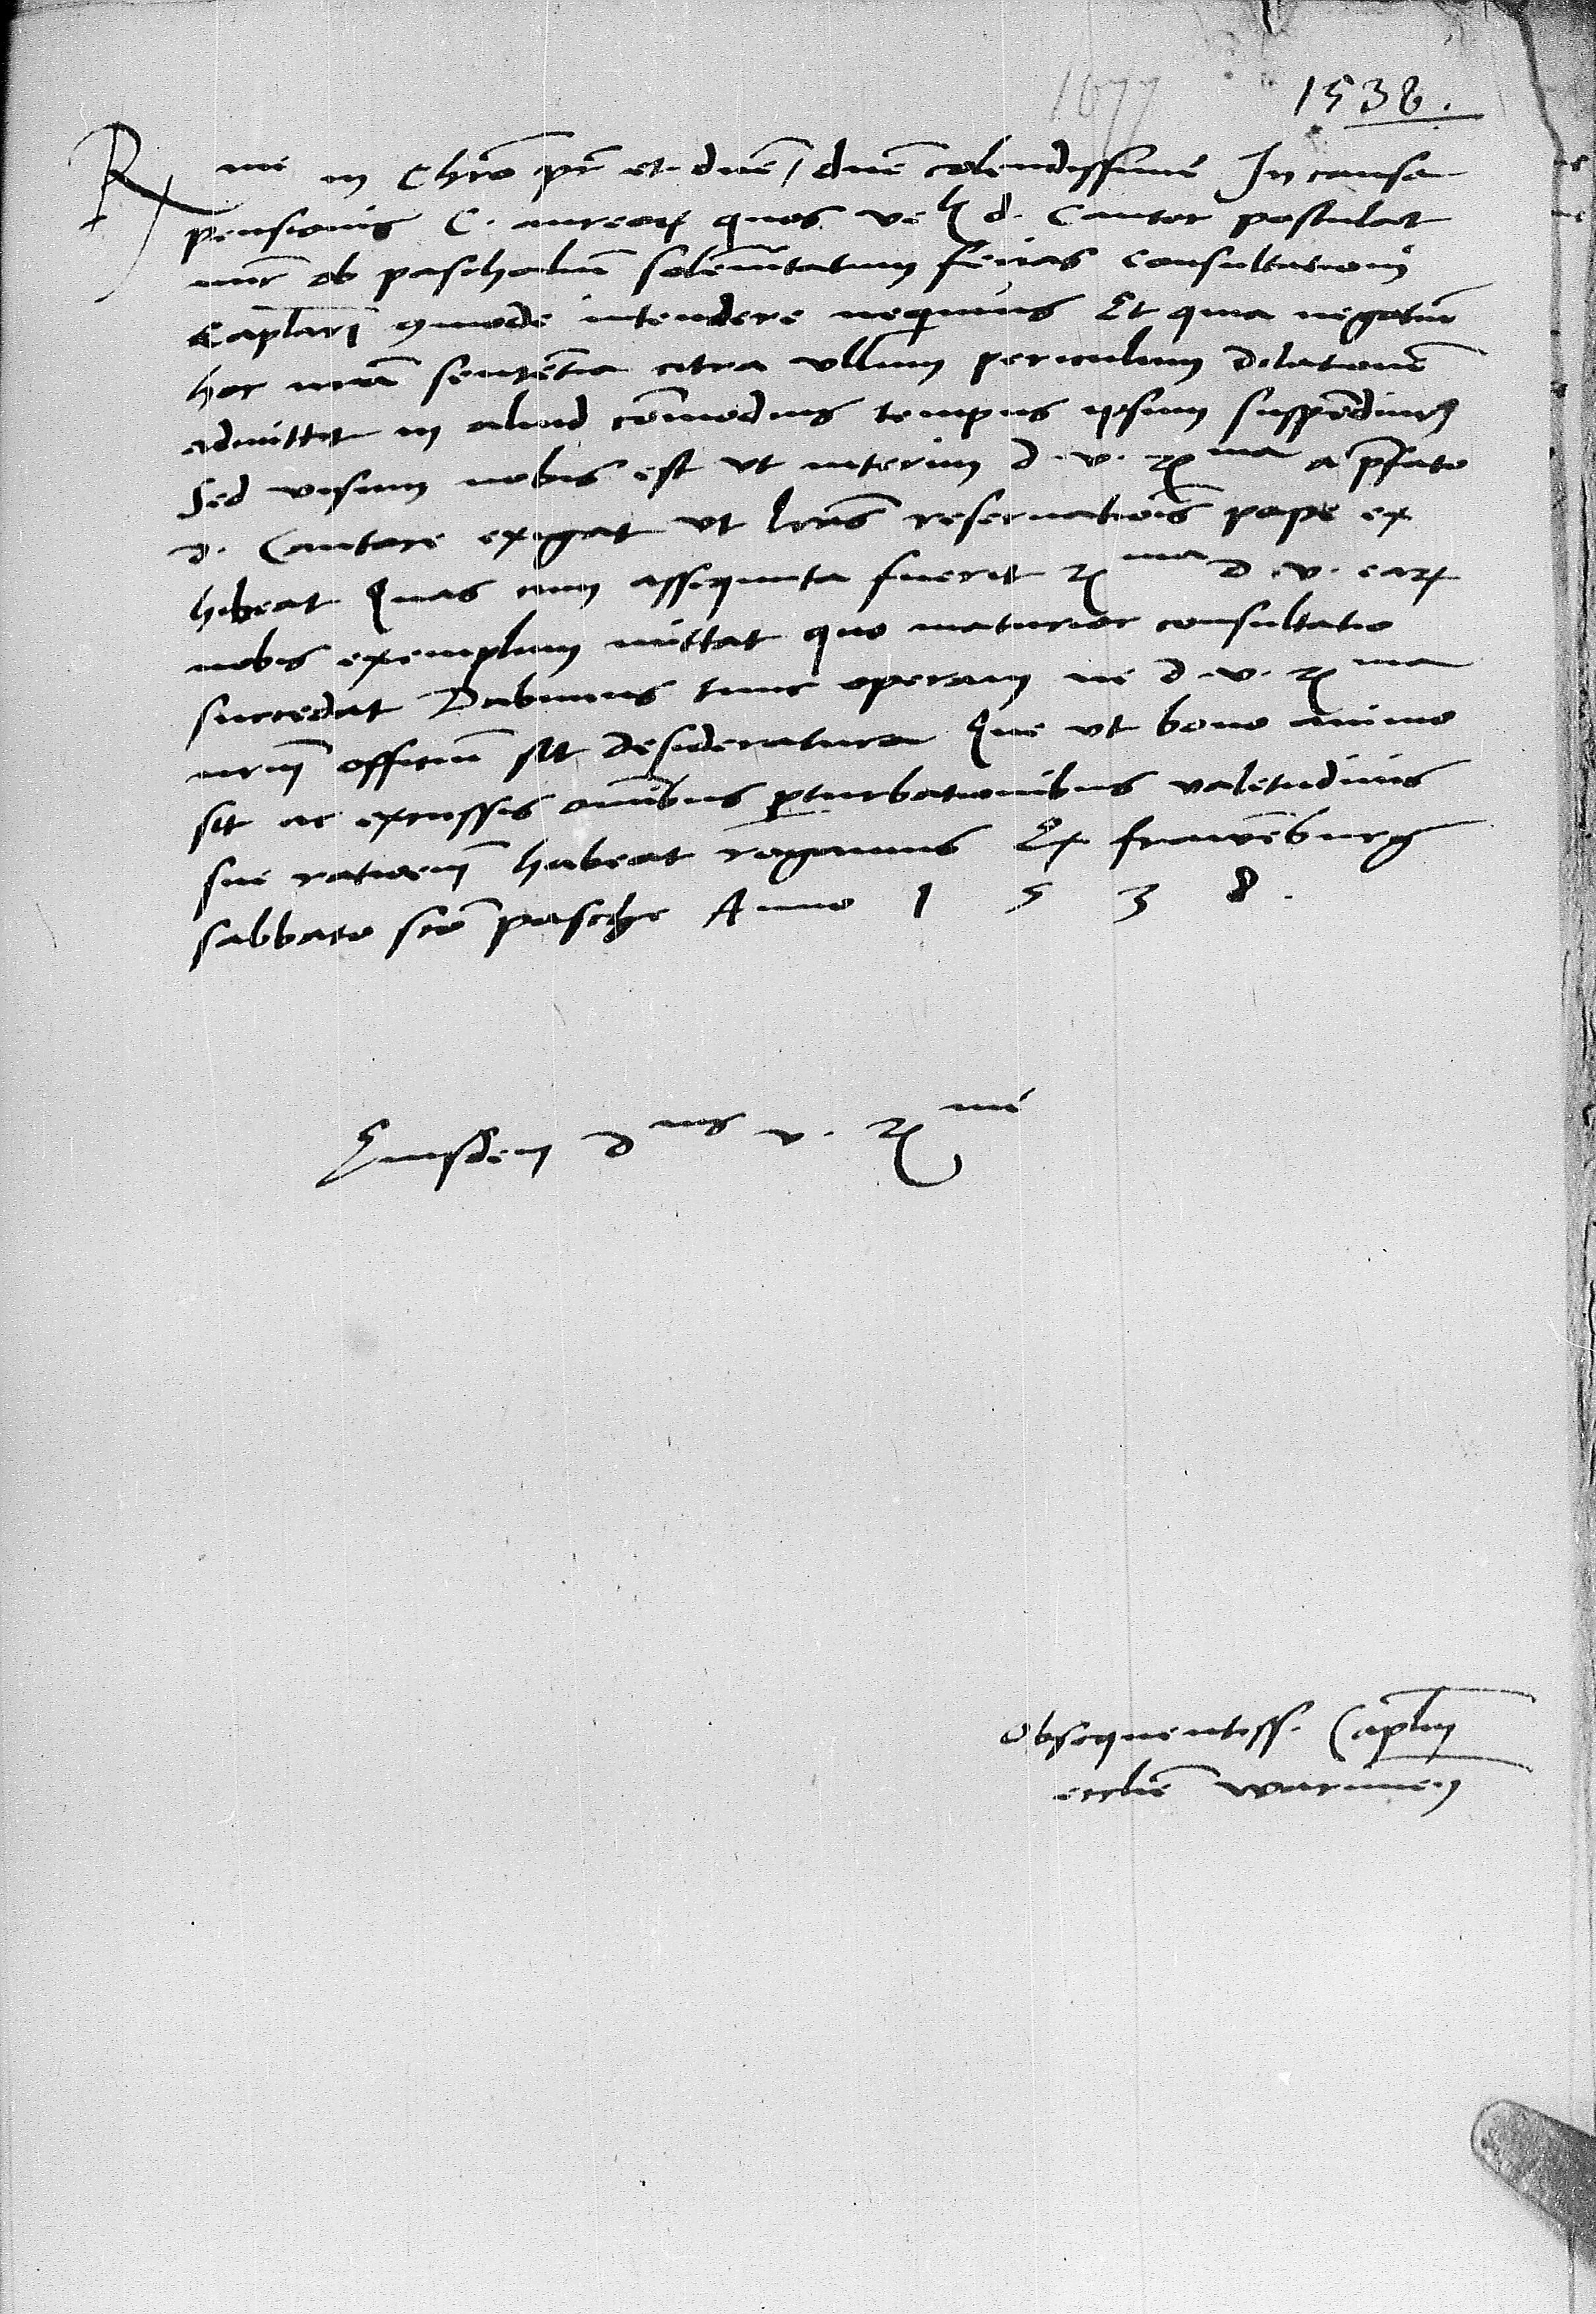 1677
1538.
Rme in Chro pr et dne / dne colendissime In causa
pensionis C. aureorꝝ quos ve d. Cantor postulat
nunc ob paschaliũ solẽnitatum ferias consultationi
Caplari ꝯmode intendere nequimus Et quia negotiũ
hoc nr̃a sentẽtia citra vllum periculum dilationẽ
admittit in aliud cõmodius tempus ipsum suspẽdimus
Sed visum nobis est vt interim d. v. R ma a p̃fato
d. Cantore exigat vt lr̃as reseruatiõis pape ex
hibeat Quas cum assequuta fuerit R ma d. v. earꝝ
nobis exemplum mittat quo maturior consultatio
succedat Dabimus tunc operam ne d. v. R ma
nr̃m officiũ sit desideratura Que vt bono animo
sit ac excussis omĩbus ꝑturbationibus valetudinis
sue rationem habeat rogamus Ex frawẽburg
sabbato scõ pasche Anno 1 5 3 8.
Eiusdem d nis v. R me
Obsequentiss. Caplm
ecclie warmien